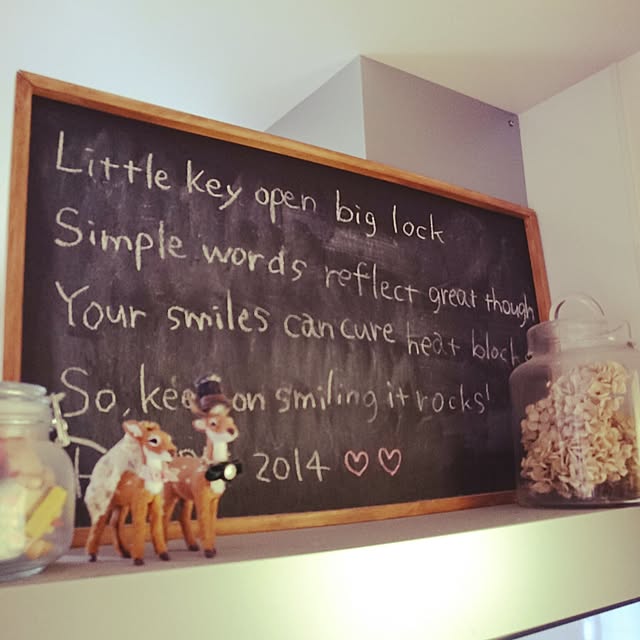 Little key open big lock
Simple words reflect great though
Your smiles can cure heat block
So, kee on smiling it rocks!
2014 ♡♡